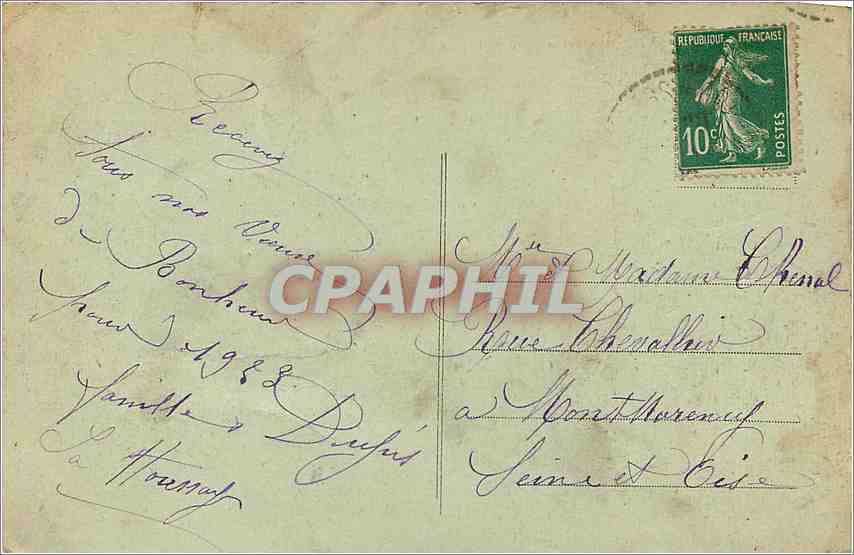 Recevez
tous nos Vœux
de Bonheur
pour 1922
famille Dufus
La Houssaye
REPUBLIQUE FRANÇAISE
10c
POSTES
Mr et Madame Chenal
Rue Chevallier
a Montmorency
Seine et Oise
CPAPHIL